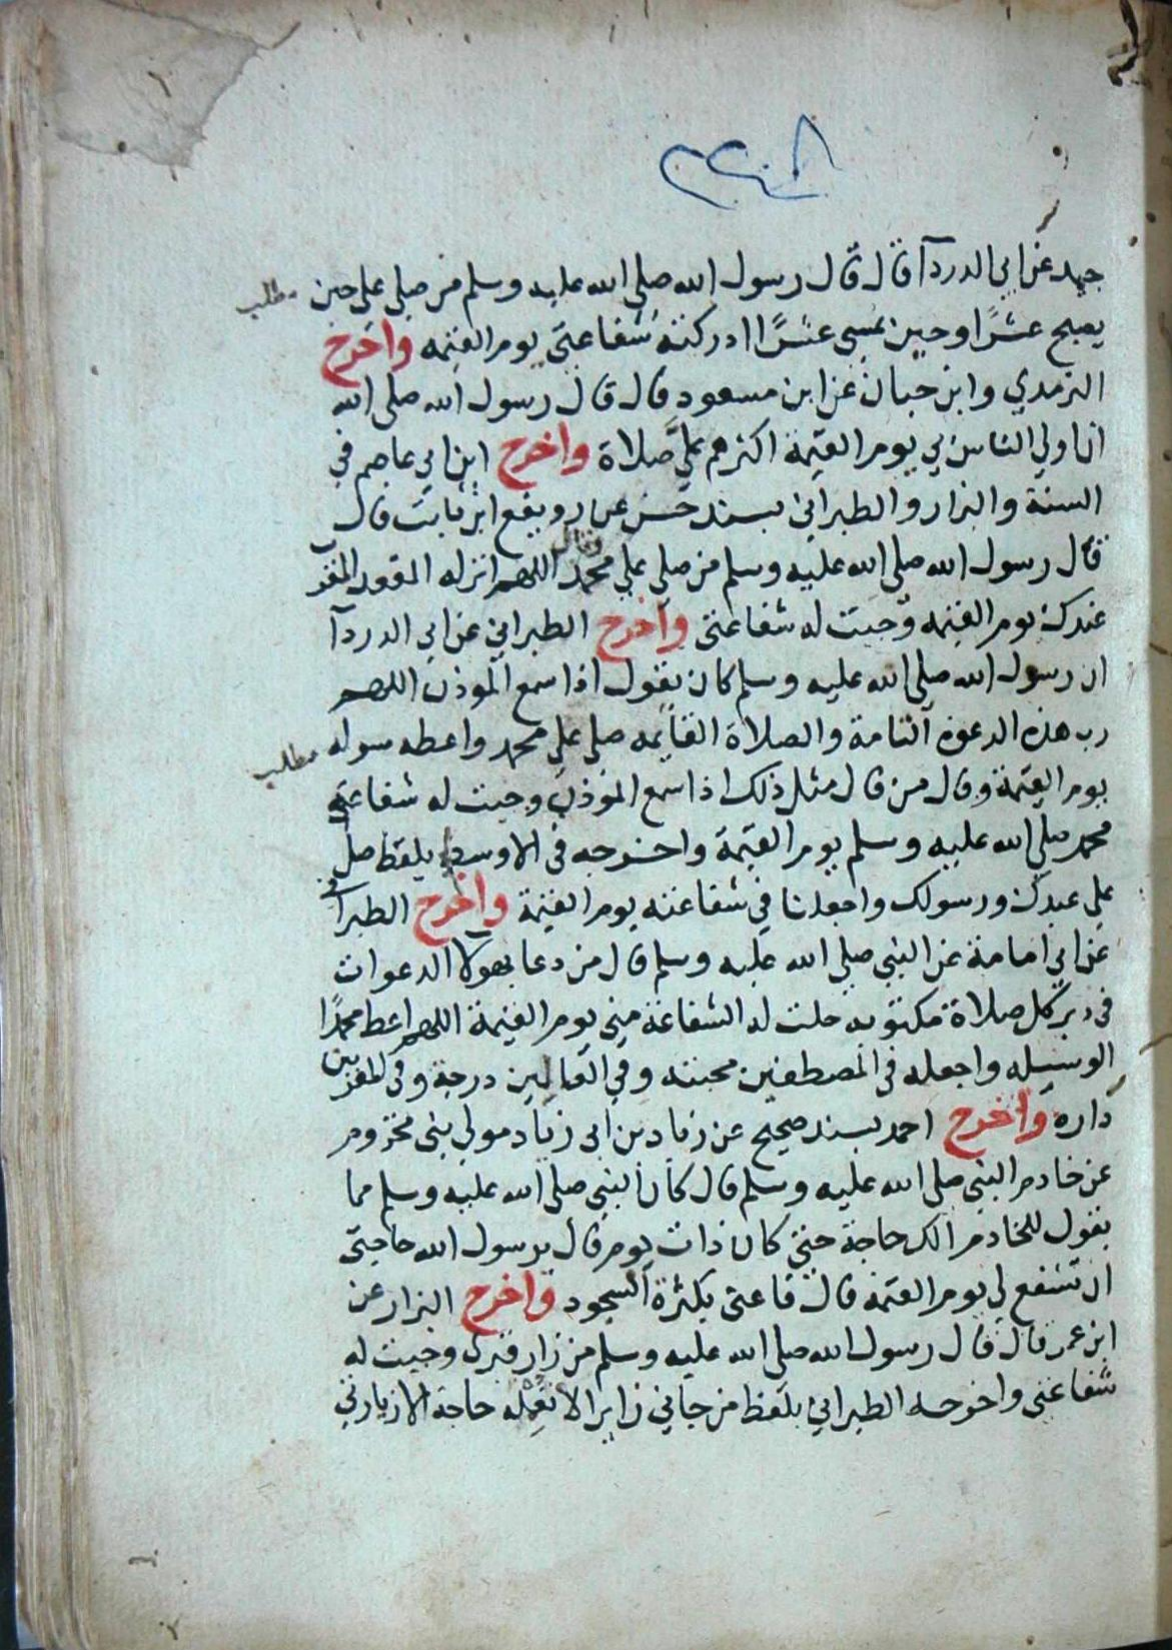 جيد عن ابي الدردآ قال قال رسول الله صلى الله عليه وسلم من صلى علي حين
مطلب
يصبح عشرًا وحين يمسي عشرًا ادركته شفاعتي يوم القيمه واخرج
الترمدي وابن حبان عن ابن مسعود قال قال رسول الله صلى الله
ان اولي الناس بي يوم القيمة اكثرهم عليَّ صلاة واخرج ابن ابي عاصم في
السنة والبزار والطبراني بسند حسن عن رويفع ابن ثابت قال
قال رسول الله صلى الله عليه وسلم من صلى علي محمد وقال اللهم انزله المقعد المقرب
عندك يوم القيمه وجبت له شفاعتي واخرج الطبراني عن ابي الدردآ
ان رسول الله صلى الله عليه وسلم كان يقول اذا سمع الموذن اللهم
رب هذه الدعوة التامة والصلاة القايمه صلي علي محمد واعطه سوله
مطلب
يوم القيمة وقال من قال مثل ذلك اذا سمع الموذن وجبت له شفاعة
محمد صلي الله عليه وسلم يوم القيمة واخرجه في الاوسط بلفظ صل
علي عبدك ورسولك واجعلنا في شفاعته يوم القيمة واخرج الطبراني
عن ابي امامة عن النبي صلي الله عليه وسلم قال من دعا بهولا الدعوات
في دبر كل صلاة مكتوبه حلت له الشفاعة مني يوم القيمة اللهم اعط محمدًا
الوسيله واجعله في المصطفين محبته وفي العالمين درجة وفي المقربين
داره واخرج احمد بسند صحيح عن زياد بن ابي زياد مولي بني مخزوم
عن خادم النبي صلى الله عليه وسلم قال كان النبي صلى الله عليه وسلم مما
يقول للخادم الك حاجة حتي كان ذات يوم قال يرسول الله حاجتي
ان تشفع لي يوم القيمة قال فاعني بكثرة السجود واخرج البزار عن
ابن عمر قال قال رسول الله صلي الله عليه وسلم من زار قبري وجبت له
شفاعتي واخرجه الطبراني بلفظ من جاني زايرا لا تعمله حاجة الا زيارتي